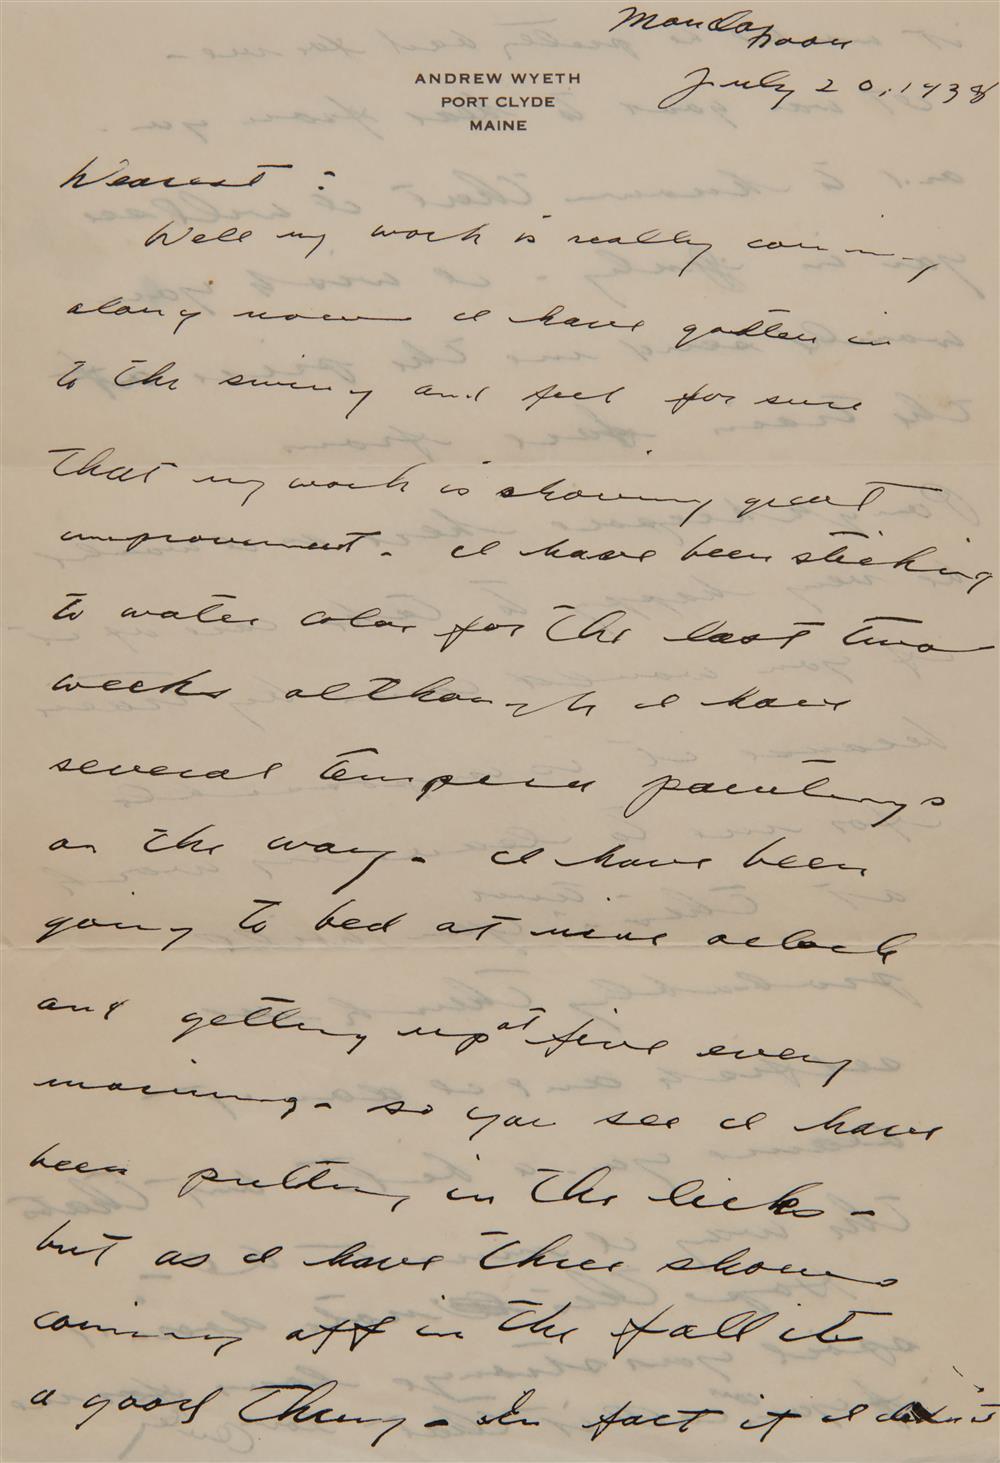 Monday noon
July 20, 1938
ANDREW WYETH
PORT CLYDE
MAINE
Dearest :
Well my work is really coming
along now I have gotten in
to the swing and feel for sure
that my work is showing great
improvement - I have been sticking
to water color for the last two
weeks although I have
several tempera paintings
on the way - I have been
going to bed at nine oclock
and getting up at five every
morning - so you see I have
been putting in the licks -
but as I have three shows
coming off in the fall it
a good thing - In fact it I